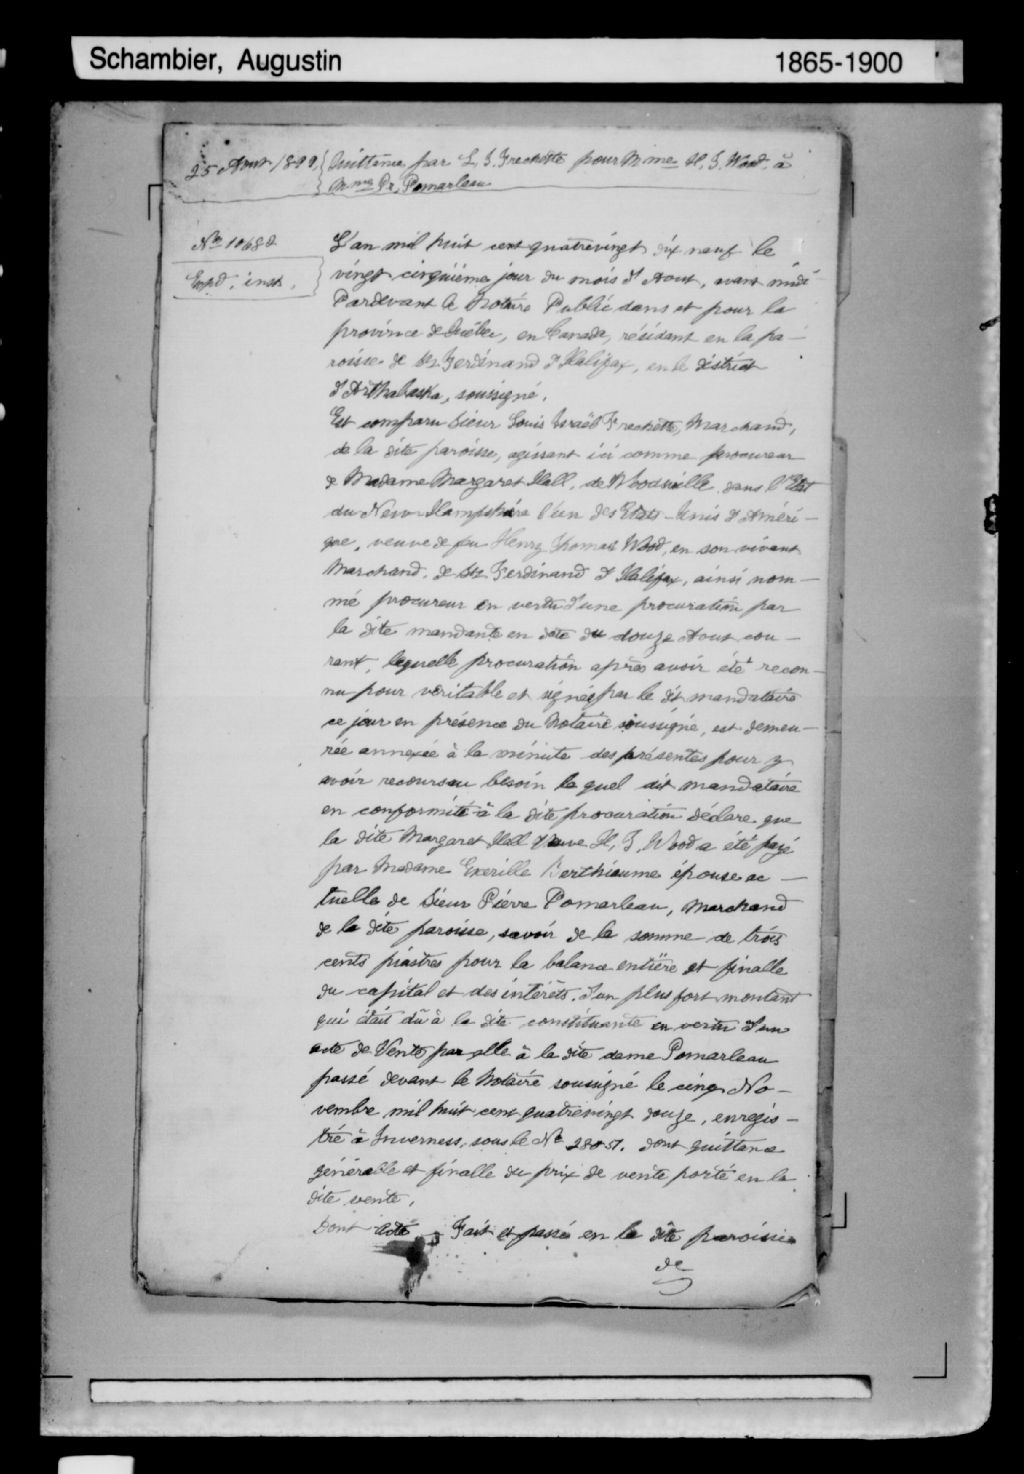 Schambier, Augustin 1865-1900
25 Aout 1899 Quittance par L. I. Frechette pour Mme H. T. Wood à
Mme Pr. Pomarleau
No 10682
Expd. inst.
L'an mil huit cent quatrevingt dix neuf le
vingt cinquième jour du mois d'Aout, avant midi
Pardevant le Notaire Public dans et pour la
province de Québec, en Canada, résidant en la pa-
roisse de St Ferdinand d'Halifax, en le district
d'Arthabaska, soussigné.
Est comparu Sieur Louis Israël Frechette, Marchand,
de la dite paroisse, agissant ici comme procureur
de Madame Margaret Hall, de Woodsville, dans l'Etat
du New-Hampshire l'un des Etats-Unis d'Améri-
que, veuve de feu Henry Thomas Wood, en son vivant
Marchand, de St Ferdinand d'Halifax, ainsi nom-
mé procureur en vertu d'une procuration par
la dite mandante en date du douze Aout cou-
rant, lequelle procuration après avoir été recon-
nu pour véritable et signée par le dit mandataire
ce jour en présence du Notaire soussigné, est demeu-
rée annexée à la minute des présentes pour y
avoir recours au besoin le quel dit mandataire
en conformité à la dite procuration déclare que
la dite Margaret Hall Veuve H. T. Wood a été payé
par Madame Exerille Berthiaume épouse ac-
tuelle de Sieur Pierre Pomarleau, Marchand
de la dite paroisse, savoir de la somme de trois
cents piastres pour la balance entière et finalle
du capital et des intérêts. d'un plus fort montant
qui était dû à la dite constituante en vertu d'un
acte de Vente par elle à la dite dame Pomarleau
passé devant le Notaire soussigné le cinq No-
vembre mil huit cent quatrevingt douze, enregis-
tré à Inverness, sous le No 28051. dont quittance
générale et finalle du prix de vente porté en la
dite vente.
Dont Acte - Fait et passé en la dite paroisse
de